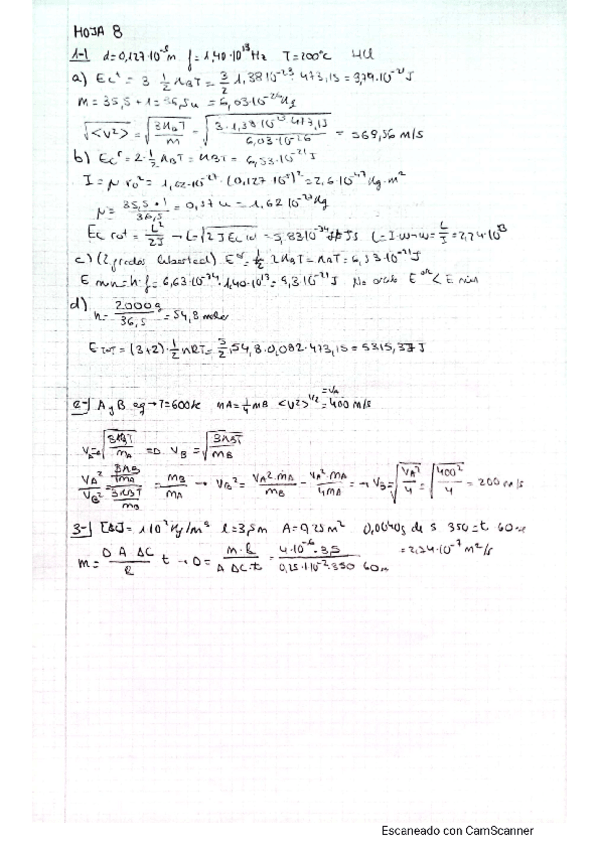 HOJA 8
1-| d=0,127·10⁻⁹m f=1,40·10¹³Hz T=200ºC HCl
a) Ecᵗ = 3 1/2 kBT = 3/2 1,38·10⁻²³ 473,15 = 9,79·10⁻²¹J
m = 35,5 + 1 = 36,5u = 6,03·10⁻²⁶Kg
√<v²> = √(3kBT/m) = √(3·1,38·10⁻²³·473,15/6,03·10⁻²⁶) = 569,56 m/s
b) Ecʳ = 2·1/2 kBT = kBT = 6,53·10⁻²¹J
I = μ r₀² = 1,62·10⁻²⁷·(0,127·10⁻⁹)² = 2,6·10⁻⁴⁷Kg·m²
μ = 35,5·1/36,5 = 0,97u = 1,62·10⁻²⁷Kg
Ec rot = L²/2I → L = √(2 I Ec rot) = 5,83·10⁻³⁴ Js L = I·w → w = L/I = 2,24·10¹³
c) (2 grados ) = 1/2 2kBT = kBT = 6,53·10⁻²¹J
E min = h·f = 6,63·10⁻³⁴·1,40·10¹³ = 9,3·10⁻²¹J No < E min
d) n = 2000g/36,5 = 54,8 moles
E TOT = (3+2)·1/2 nRT = 5/2, 54,8·0,082·473,15 = 5315,37J
2-| A y B T=600K mA = 1/4 mB <v²>^1/2 = vA = 400 m/s
vA = √(3kBT/mA) => vB = √(3kBT/mB)
vA²/vB² = (3kBT/mA)/(3kBT/mB) = mB/mA → vB² = vA²·mA/mB = vA²·mA/4mA = → vB = √(vA²/4) = √(400²/4) = 200 m/s
3-| = 1·10⁻² Kg/m⁴ l = 3,5m A = 0,25m² 0,0040g de s 350 = t 60
m = D A ΔC/l t → D = m·l/A ΔC·t = 4·10⁻⁶·3,5/0,25·1·10⁻²·350 60 = 2,34·10⁻⁷ m²/s
Escaneado con CamScanner